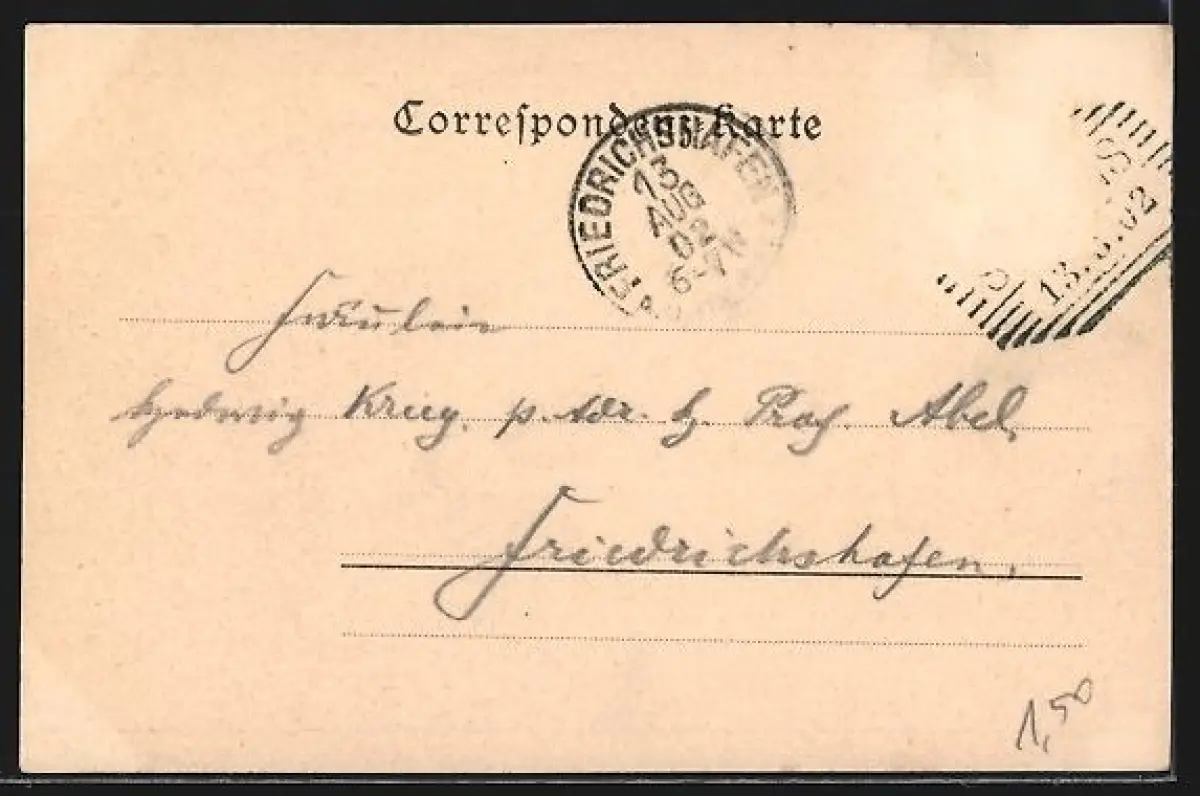 Correspondenz-Karte
FRIEDRICHSHAFEN
13
AUG
02
6-7N
13.8.02
Fräulein
Hedwig Krieg, p. Adr. H. Prof. Abel,
Friedrichshafen,
1,50